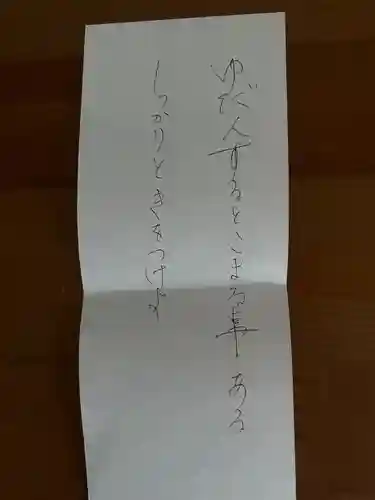 ゆだんするとこまる事ある
しっかりときをつける